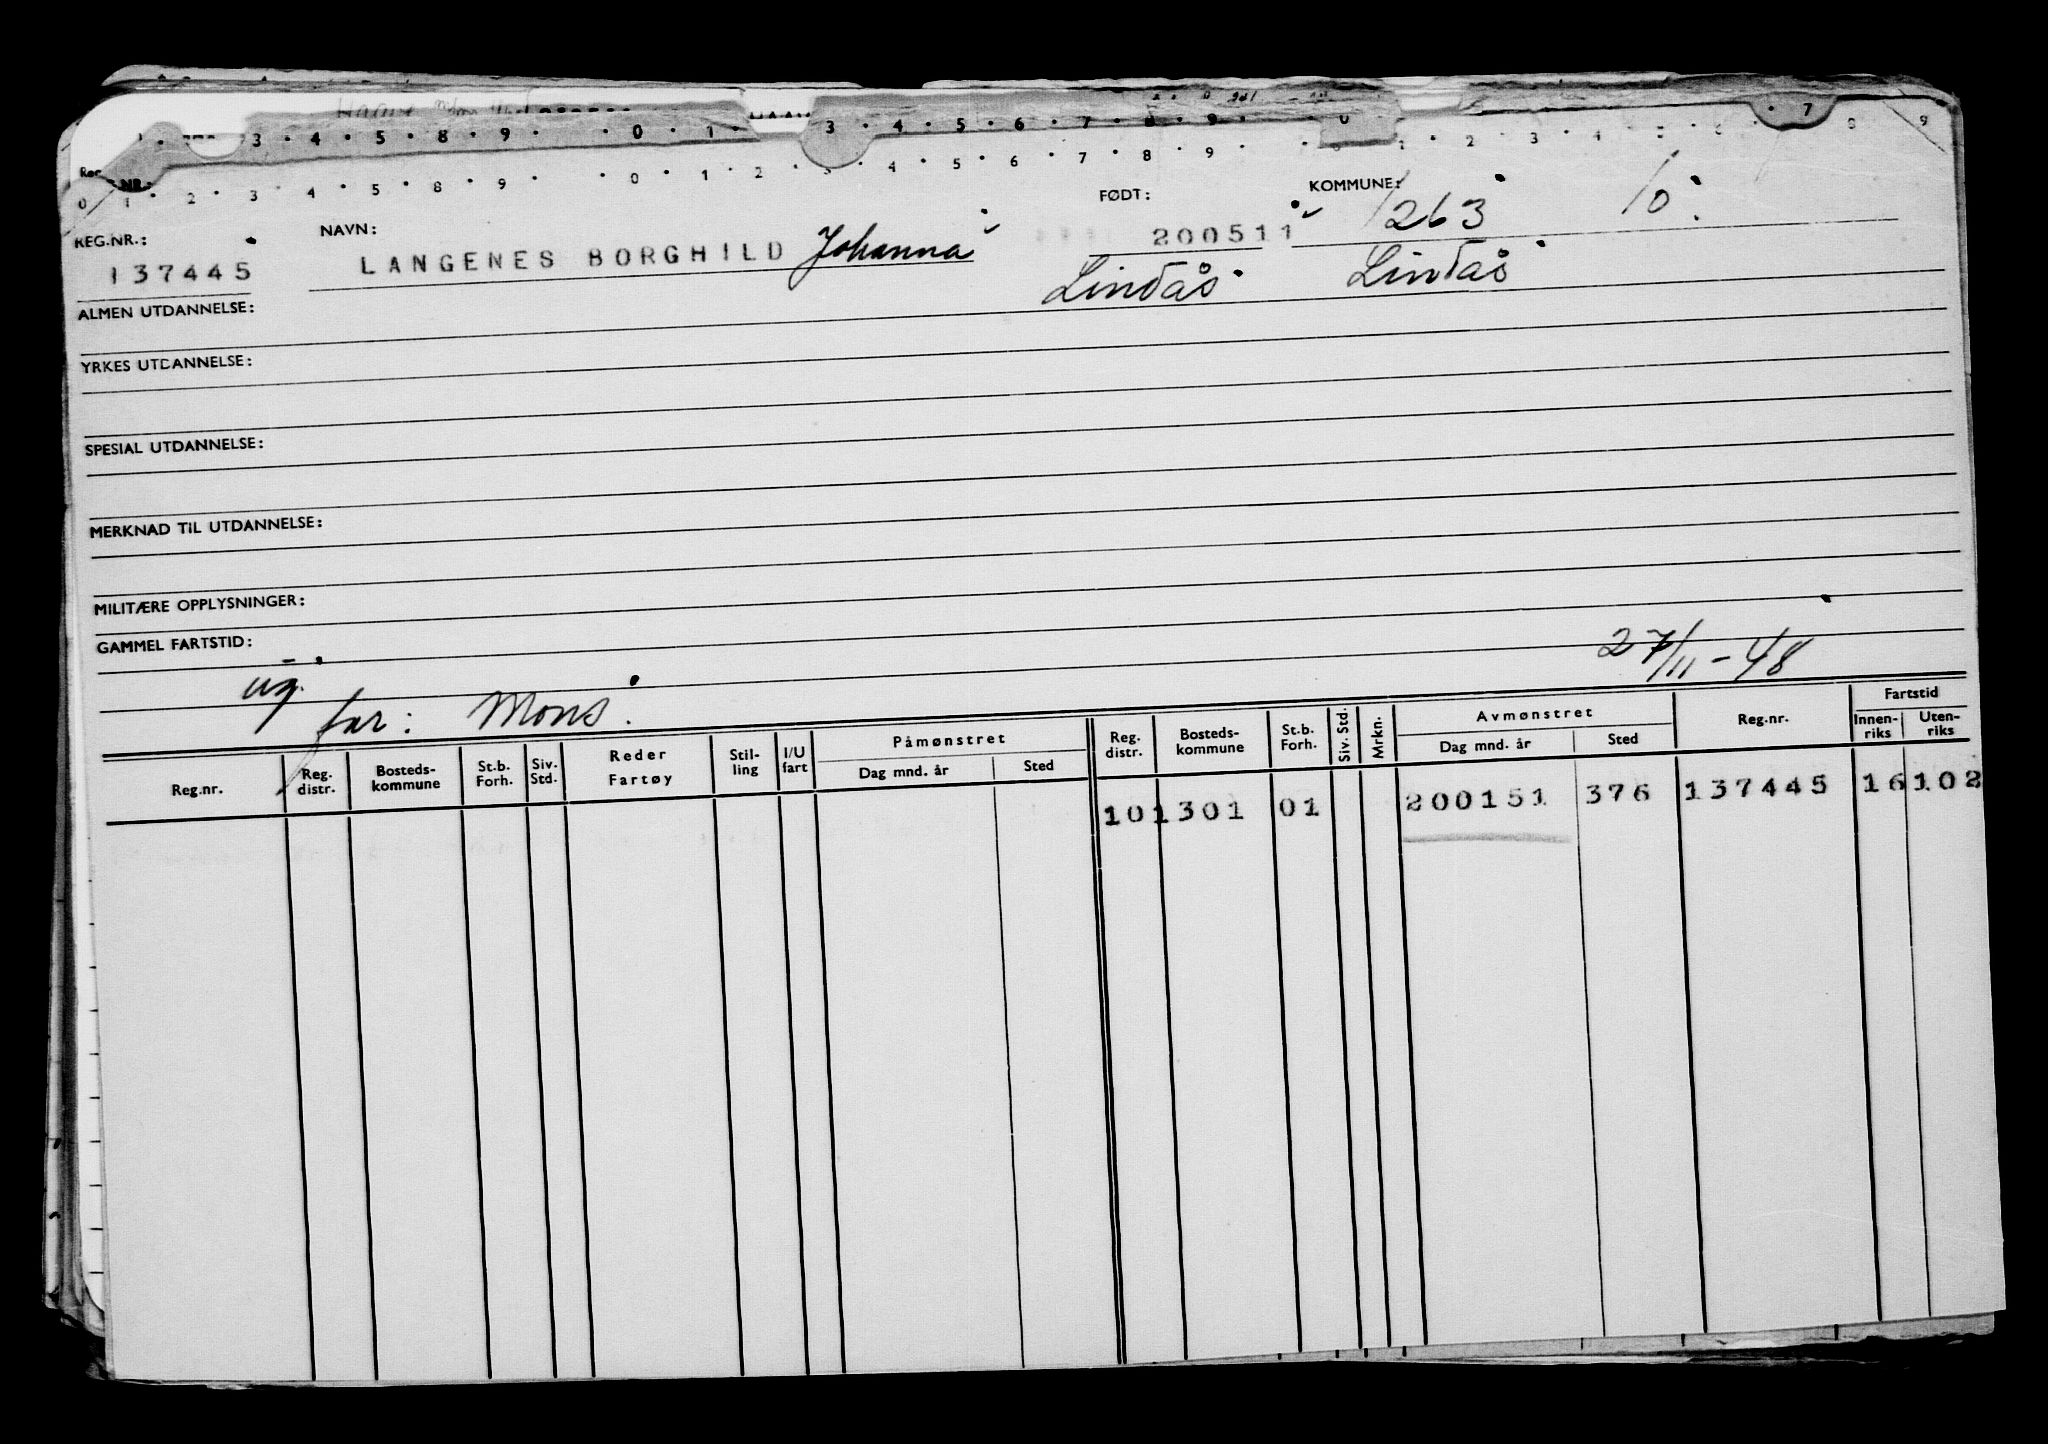 3 · 4 · 5 · 8 · 9 · 0 · 1 · 3 · 4 · 5 · 6 · 7 · 8 · 9 · 0 · 7
0 1 · 2 · 3 · 4 · 5 · 8 · 9 · 0 · 1 · 2 · 4 · 5 · 6 · 7 · 8 · 9 · 1 · 2 · 3 · 4 · 8 9
REG.NR.: NAVN: FØDT: KOMMUNE:
137445 LANGENES BORGHILD Johanna 200511 1263 10.
Lindås Lindås
ALMEN UTDANNELSE:
YRKES UTDANNELSE:
SPESIAL UTDANNELSE:
MERKNAD TIL UTDANNELSE:
MILITÆRE OPPLYSNINGER:
GAMMEL FARTSTID:
27/11-48
ug.
far: Mons.
Reg.nr. Reg. distr. Bosteds-kommune St.b. Forh. Siv. Std. Reder Fartøy Stil-ling I/U fart Påmønstret Dag mnd. år Sted Reg. distr. Bosteds-kommune St.b. Forh. Siv. Std. Mrkn. Avmønstret Dag mnd. år Sted Reg.nr. Fartstid Innen-riks Uten-riks
101301 01 200151 376 137445 16 102